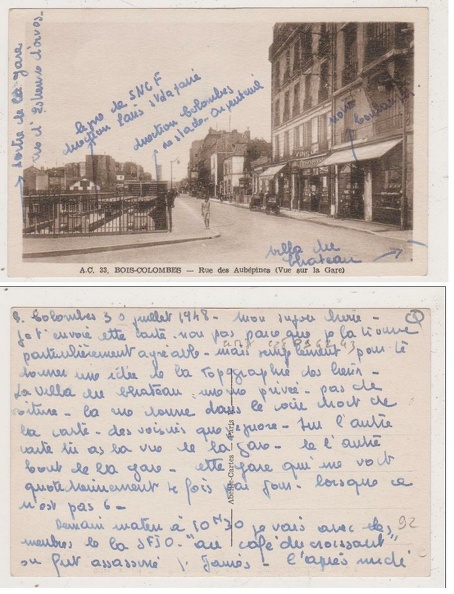 sortie de la gare
ligne de SNCF
direction Paris St Lazare
direction Colombes
stade Argenteuil
notre
boulanger
VINS
villa du
chateau
A.C. 33. BOIS-COLOMBES — Rue des Aubépines (Vue sur la Gare)
B. Colombes 30 juillet 1948 - mon chérie -
je t'envoie cette carte. non pas parce que je la trouve
particulièrement agréable - mais simplement pour te
donner une idée de la topographie des lieux -
La villa du chateau, privée - pas de
voiture - la donne dans le coin droit de
la carte - des voisins que - sur l'autre
carte tu as la vue de la gare - de l'autre
bout de la gare - cette gare qui me voit
quotidiennement 4 fois par jour - lorsque ce
n'est pas 6 -
Demain matin à 10H30 je vais avec des
membres de la SFIO - "au café du croissant"
où fut assassiné J. Jaurès - l'après midi
92
Abeille-Cartes - Paris